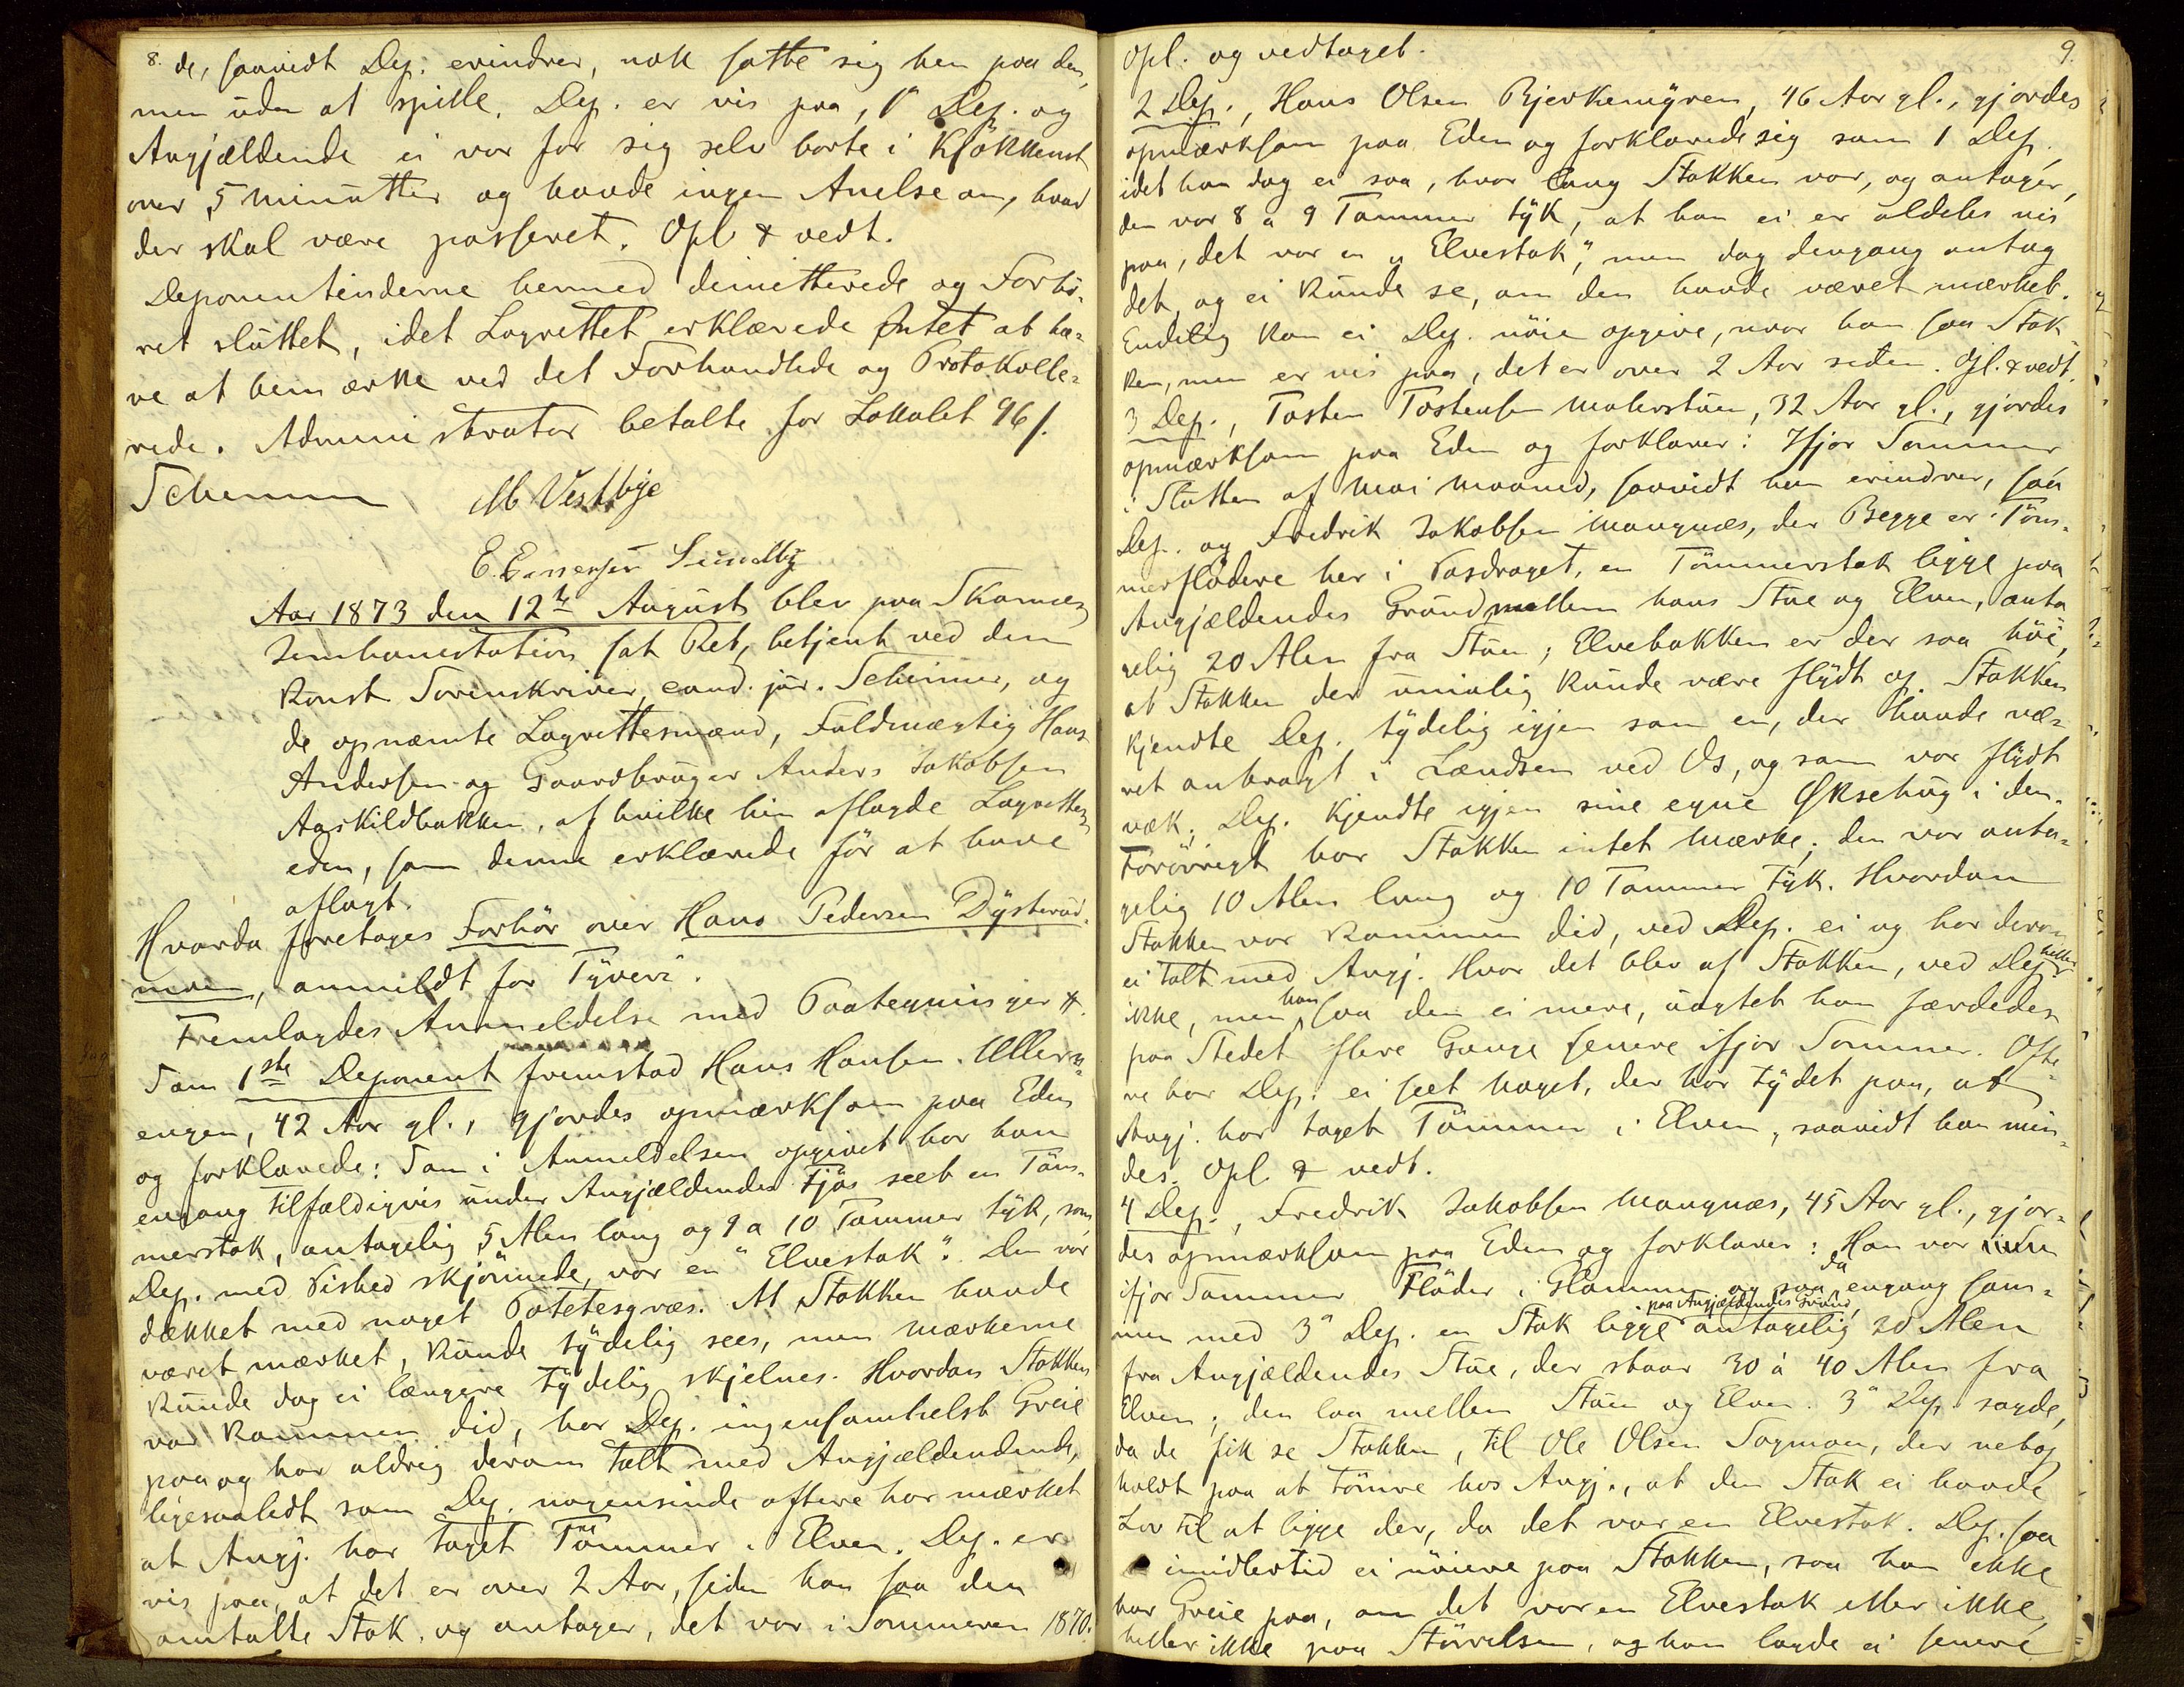 8.
de, saavidt Dep. erindrer, nok satte sig hen paa den,
men uden at spille. Dep. er vis paa, 1ͤ Dep. og
Angjældende ei var for sig selv borte i Kjøkkenet
over 5 minutter og havde ingen Anelse om, hvad
der skal være passeret. Opl & vedt.
Deponentinderne hermed dimitterede og Forhø-
ret sluttet, idet Lagrettet erklærede Intet at ha-
ve at bemærke ved det Forhandlede og Protokolle-
rede. Administrator betalte for Lokalet 96 s.
Schennum M Vestbye
E. Sundby
Aar 1873 den 12te August blev paa Skarnæs
Jernbanestation sat Ret, betjent ved den
konst Sorenskriver, cand. jur. Scheimer, og
de opnævnte Lagrettesmænd, Fuldmægtig Hans
Andersen og Gaardbruger Anders Jakobsen
Aaskildbakken, af hvilke hin aflagde Lagrettes-
eden, som denne erklærede før at have
aflagt.
Hvorda foretoges Forhør over Hans Pedersen Dysterud-
moen, anmeldt for Tyveri.
Fremlagdes Anmeldelse med Paategninger #.
Som 1ste Deponent fremstod Hans Hansen Ullern-
engen, 42 Aar gl., gjordes opmærksom paa Eden
og forklarede: Som i Anmeldelsen opgivet har han
engang tilfældigvis under Angjældendes Fjøs seet en Tøm-
merstok, antagelig 5 Alen lang og 9 a 10 Tommer tyk, som
Dep. med Vished skjønnede, var en "Elvestok". Den var
dækket med noget Potetesgræs. At Stokken havde
været mærket, kunde tydelig sees, men Mærkerne
kunde dog ei længere tydelig skjelnes. Hvordan Stokken
var kommen did, har Dep. ingensomhelst Greie
paa og har aldrig derom talt med Angjældendende,
ligesaalidt som Dep. nogensinde oftere har mærket
at Angj. har taget Tømmer i Elven. Dep. er
vis paa, at det er over 2 Aar, siden han saa den
omtalte Stok, og antager, det var i Sommeren 1870.
9.
Opl. og vedtaget.
2 Dep., Hans Olsen Bjerkemyren, 46 Aar gl., gjordes
opmærksom paa Eden og forklarede sig som 1 Dep.,
idet han dog ei saa, hvor lang Stokken var, og antager,
den var 8 a 9 Tommer tyk, at han ei er aldeles vis
paa, det var en "Elvestok", men dog dengang antog
det, og ei kunde se, om den havde været mærket.
Endelig kan ei Dep. nøie opgive, naar han saa Stok-
ken, men er vis paa, det er over 2 Aar siden. Opl. & vedt.
3 Dep., Tosten Tostensen Malerstuen, 32 Aar gl., gjordes
opmærksom paa Eden og forklarer: Ifjor Sommer
i Slutten af Mai Maaned, saavidt han erindrer, saa
Dep. og Fredrik Jakobsen Mangnæs, der Begge er Tøm-
merflødere her i Vasdraget, en Tømmerstok ligge paa
Angjældendes Grund mellem hans Stue og Elven, anta-
gelig 20 Alen fra Stuen; Elvebakken er der saa høi,
at Stokken der umulig kunde være flydt op. Stokken
kjendte Dep. tydelig igjen som en, der havde væ-
ret anbragt i Lændsen ved Os, og som var flydt
væk; Dep. kjendte igjen sine egne Øksehug i den.
Forøvrigt har Stokken intet Mærke; den var anta-
gelig 10 Alen lang og 10 Tommer tyk. Hvordan
Stokken var kommen did, ved Dep. ei og har derom
ei talt med Angj. Hvor det blev af Stokken, ved Dep. heller
ikke, men han saa den ei mere, uagtet han færdedes
paa Stedet flere Gange senere ifjor Sommer. Ofte-
re har Dep. ei seet Noget, der har tydet paa, at
Angj. har taget Tømmer i Elven, saavidt han min-
des. Opl & vedt.
4 Dep., Fredrik Jakobsen Mangnæs, 45 Aar gl., gjor-
des opmærksom paa Eden og forklarer: Han var
ifjor Sommer Fløder i Glommen og saa da engang sam-
men med 3ͤ Dep. en Stok ligge paa Angjældendes Grund, antagelig 20 Alen
fra Angjældendes Stue, der staar 30 à 40 Alen fra
Elven; den laa mellem Stuen og Elven. 3ͤ Dep. sagde,
da de fik se Stokken, til Ole Olsen Sagmoen, der netop
holdt paa at tømre hos Angj., at den Stok ei havde
Lov til at ligge der, da det var en Elvestok. Dep. saa
imidlertid ei nøiere paa Stokken, saa han ikke
har Greie paa, om det var en Elvestok eller ikke,
heller ikke paa Størrelsen, og han lagde ei senere